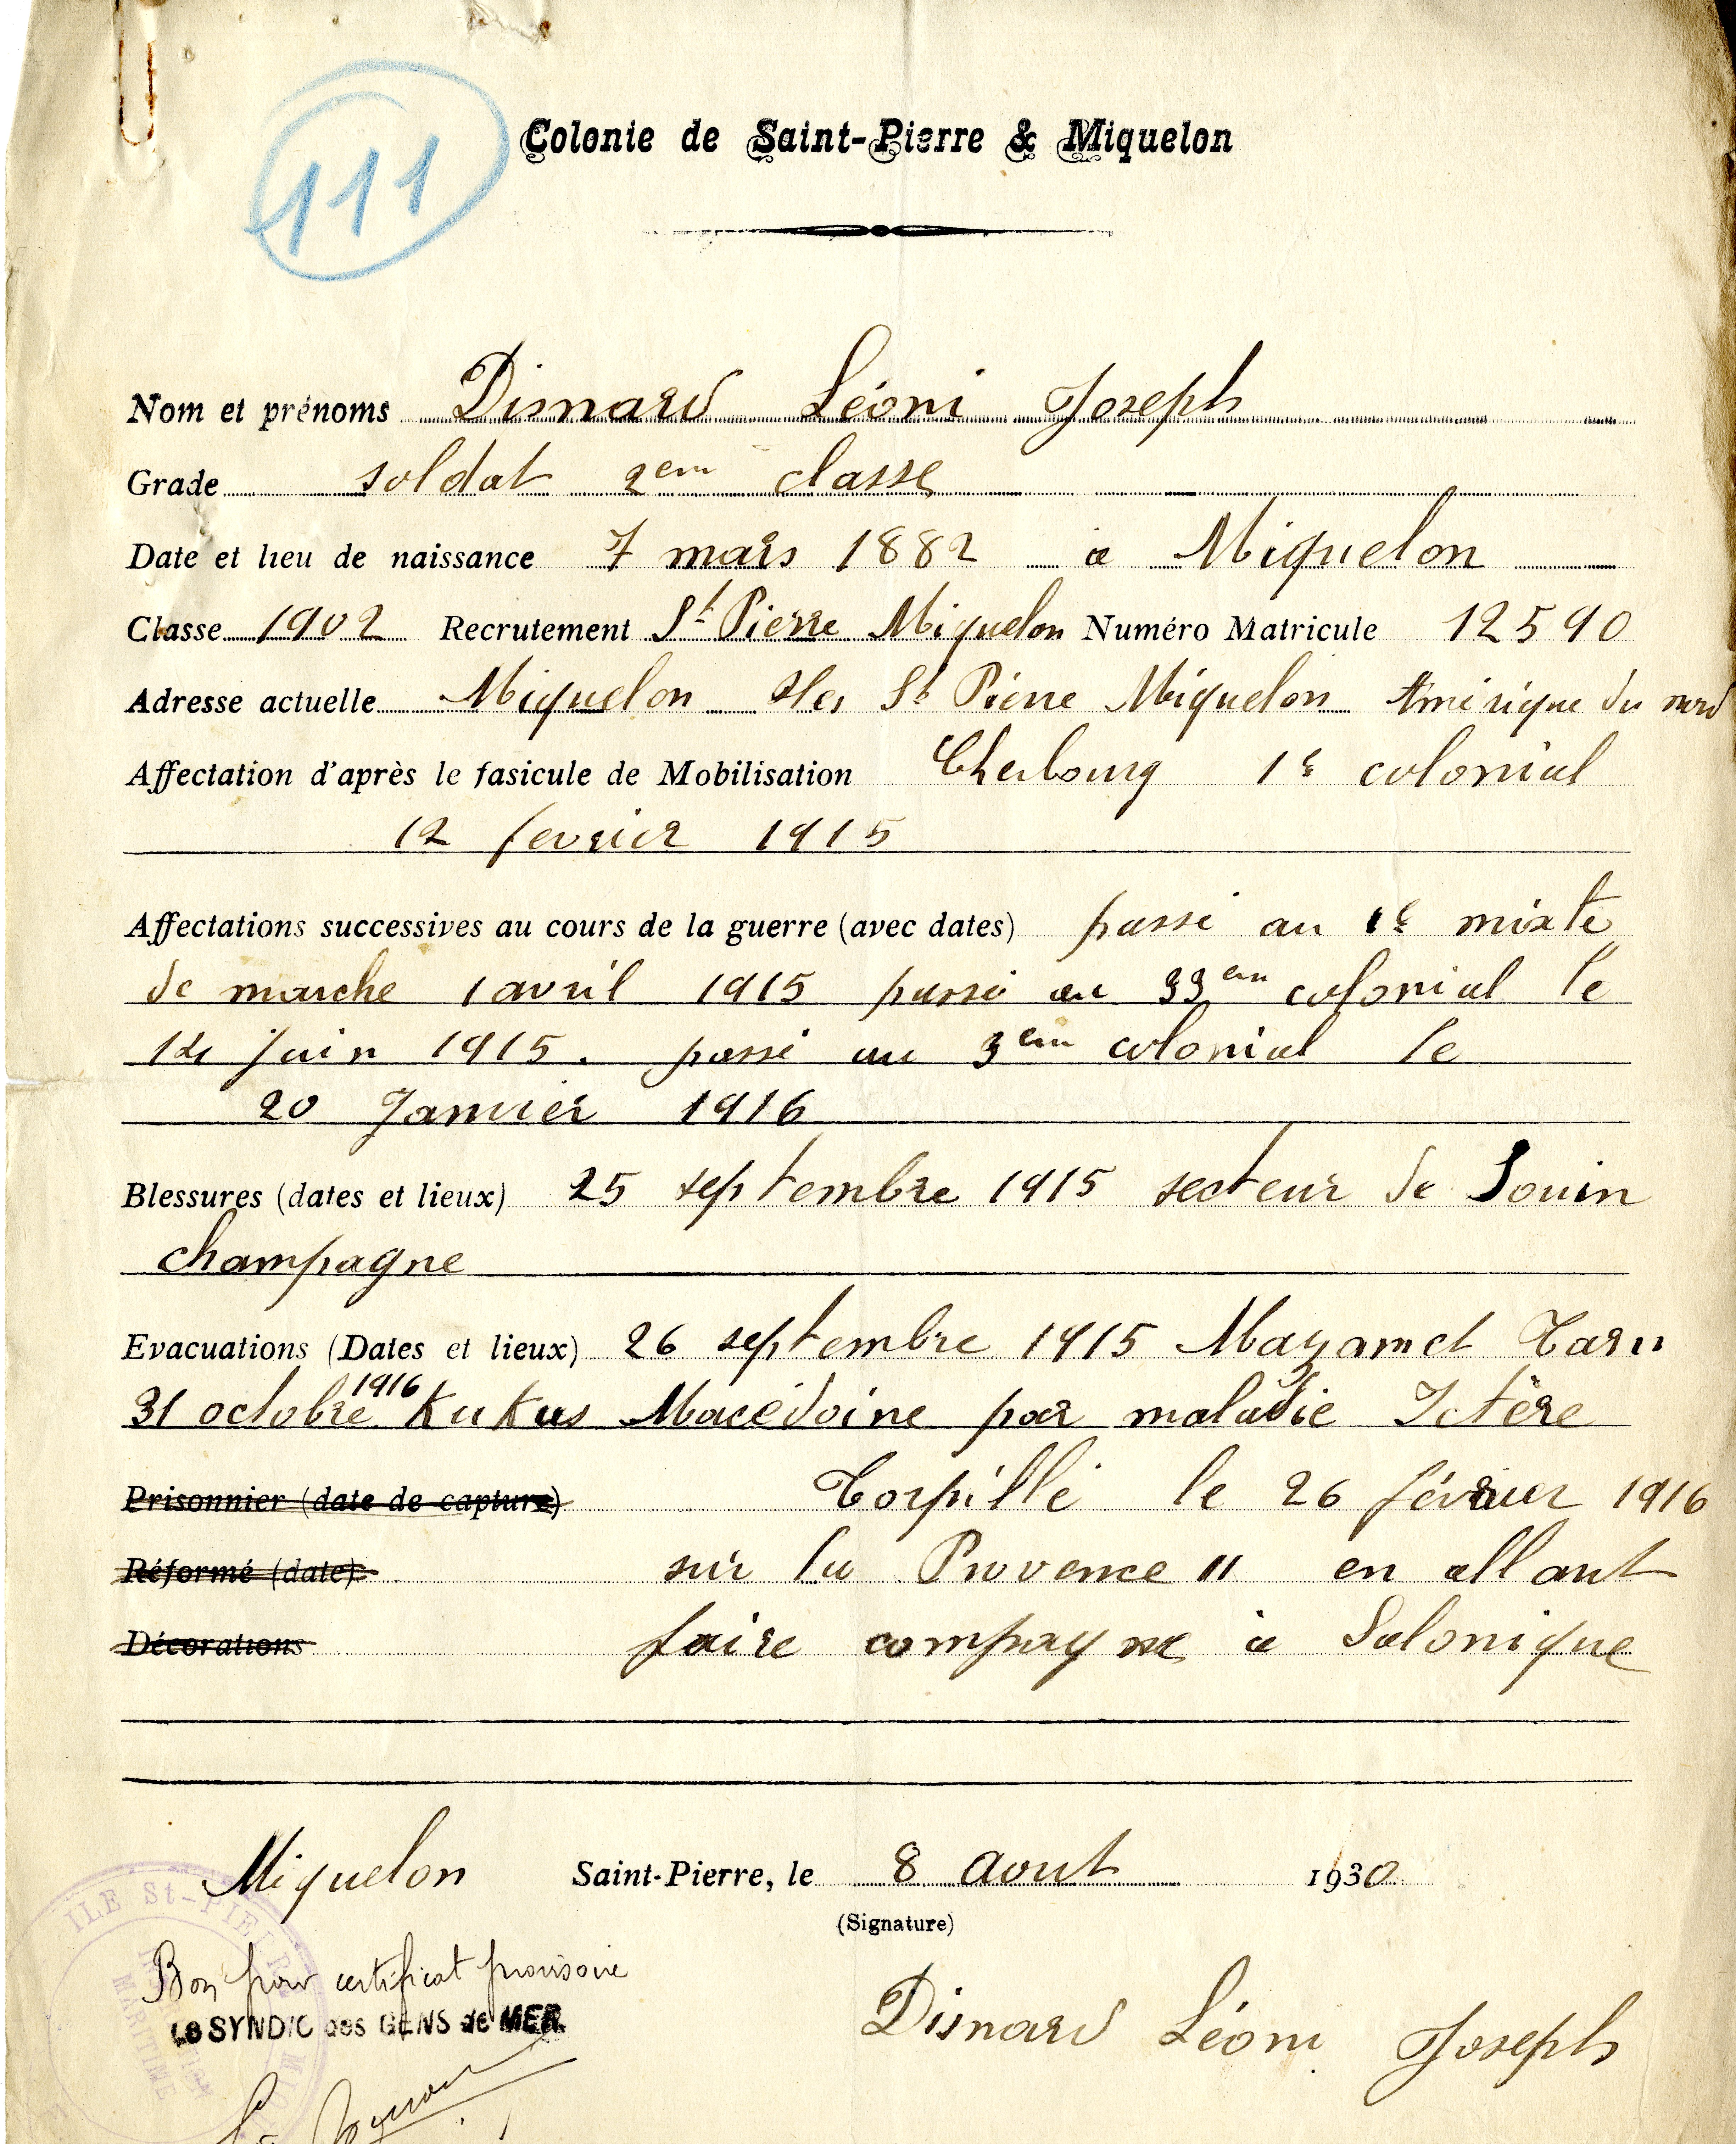 111
Colonie de Saint-Pierre & Miquelon
Nom et prénoms Disnard Léoni Joseph
Grade soldat 2em classe
Date et lieu de naissance 7 mars 1882 a Miquelon
Classe 1902 Recrutement St Pierre Miquelon Numéro Matricule 12590
Adresse actuelle Miquelon Iles St Pierre Miquelon Amérique du nord
Affectation d'après le fasicule de Mobilisation Cherbourg 1e colonial
12 fevrier 1915
Affectations successives au cours de la guerre (avec dates) passé au 1e mixte
de marche 1 avril 1915 passé au 33em colonial le
juin 1915. passé au 3em colonial le
20 Janvier 1916
Blessures (dates et lieux) 25 septembre 1915 secteur de Souin
champagne
Evacuations (Dates et lieux) 26 septembre 1915 Mazamet Tarn
31 octobre 1916 Kukus Macédoine par maladie Ictère
Prisonnier (date de capture) Torpillé le 26 février 1916
Réformé (date) sur la Provence II en allant
Décorations faire campagne à Salonique
Miquelon Saint-Pierre, le 8 Aout 1930
(Signature)
ILE St-PIERRE
MARITIME
Bon pour certificat provisoire
Le SYNDIC des GENS de MER
Disnard Léoni Joseph